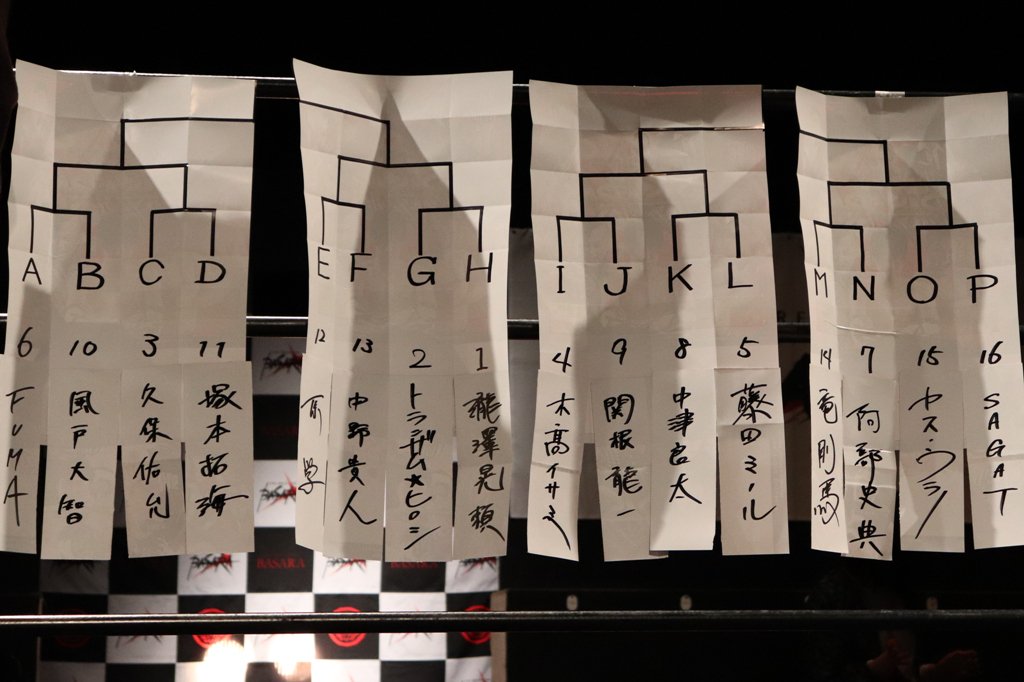 A B C D E F G H I J K L M N O P
6 10 3 11 12 13 2 1 4 9 8 5 14 7 15 16
FUMA
風戸大智
久保佑允
塚本拓海
下学
中野貴人
トランザム★ヒロシ
瀧澤晃頼
木高イサミ
関根龍一
中津良太
藤田ミノル
竜剛馬
阿部史典
ヤス・ウラノ
SAGAT
BASARA BASARA